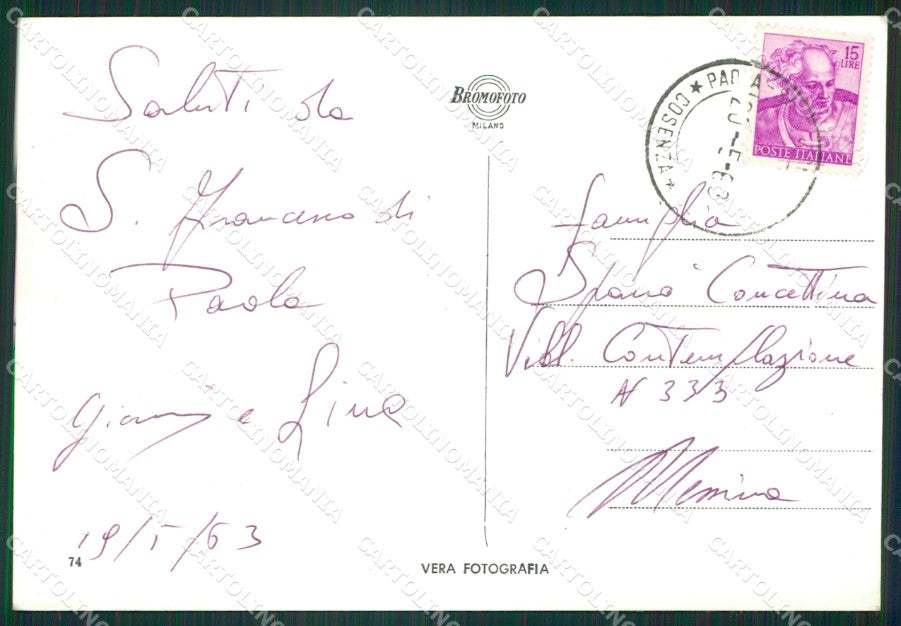 Saluti da
S. Francesco di
Paola
Gianni e Lina
19/5/63
74
BROMOFOTO
MILANO
VERA FOTOGRAFIA
15
LIRE
POSTE ITALIANE
★ COSENZA ★
20-5-63
famiglia
Spanò Concettina
Vill. Contemplazione
N 333
Messina
CARTOLINOMANIA